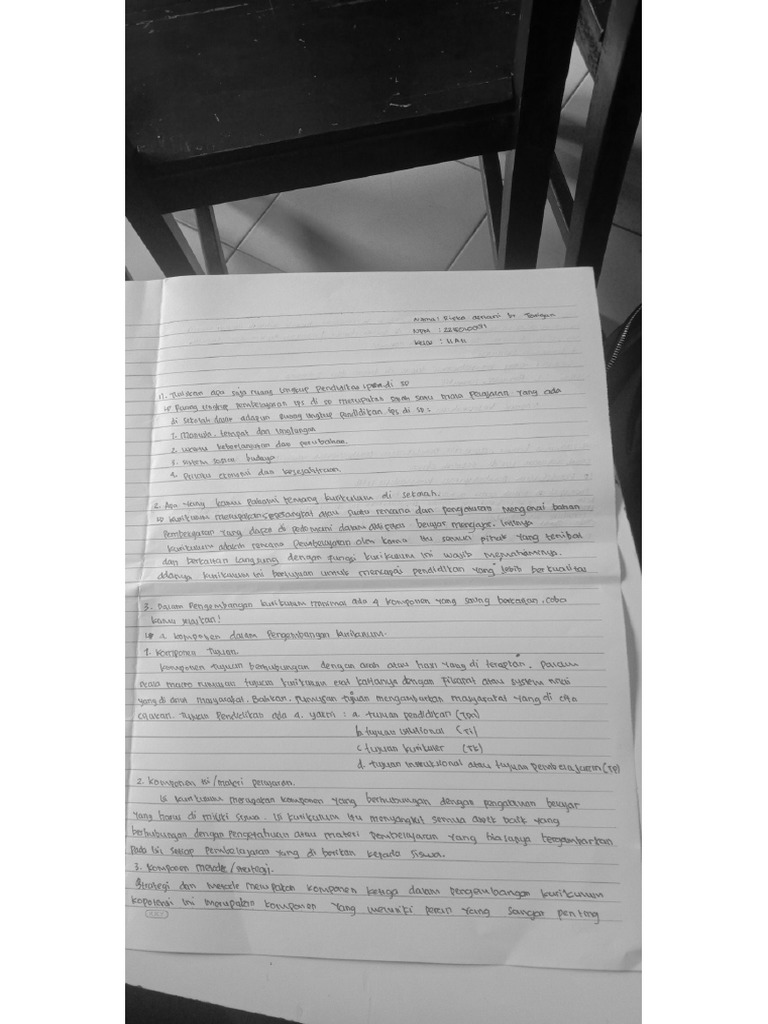 Nama : Rizka asmani br Tarigan
NPM :
Kelas :
1. Tuliskan apa saja ruang lingkup pendidikan ips di SD
↳ Ruang lingkup pembelajaran ips di SD merupakan salah satu mata pelajaran yang ada
di sekolah dasar adapun ruang lingkup pendidikan ips di SD :
1. Manusia, tempat dan lingkungan
2. waktu keberlanjutan dan perubahan.
3. sistem sosial budaya
4. Perilaku ekonomi dan kesejahteraan.
2. Apa yang kamu Pahami tentang kurikulum di sekolah.
↳ Kurikulum merupakan seperangkat atau suatu rencana dan pengaturan mengenai bahan
Pembelajaran yang dapat di pedomani dalam aktifitas belajar mengajar. Intinya
kurikulum adalah rencana Pembelajaran oleh karna itu semua pihak yang terlibat
dan berkaitan langsung dengan fungsi kurikulum ini wajib memahaminya.
adapun kurikulum ini bertujuan untuk mencapai pendidikan yang lebih berkualitas
3. Dalam Pengembangan kurikulum minimal ada 4 komponen yang saling berkaitan, coba
kamu jelaskan!
↳ 4 komponen dalam Pengembangan kurikulum.
1. Komponen Tujuan.
Komponen Tujuan berhubungan dengan arah atau hasil yang di terapkan. Dalam
skala macro rumusan tujuan kurikulum erat kaitanya dengan filsafat atau system nilai
yang di anut masyarakat. Bahkan, rumusan tujuan mengambarkan masyarakat yang di cita
citakan. Tujuan Pendidikan ada 4. yakni : a. tujuan pendidikan (TPN)
b. tujuan institusional (TI)
c. tujuan kurikuler (TK)
d. tujuan instruksional atau tujuan pembelajaran (TP)
2. komponen isi/materi pelajaran.
Isi kurikulum merupakan komponen yang berhubungan dengan pengalaman belajar
yang harus di miliki siswa. isi kurikulum itu menyangkut semua aspek baik yang
berhubungan dengan Pengetahuan atau materi pembelajaran yang biasanya tergambarkan
pada isi setiap pembelajaran yang di berikan kepada siswa.
3. komponen metode/strategi.
Strategi dan Metode merupakan komponen ketiga dalam pengembangan kurikulum
ini merupakan komponen yang memiliki peran yang sangat penting